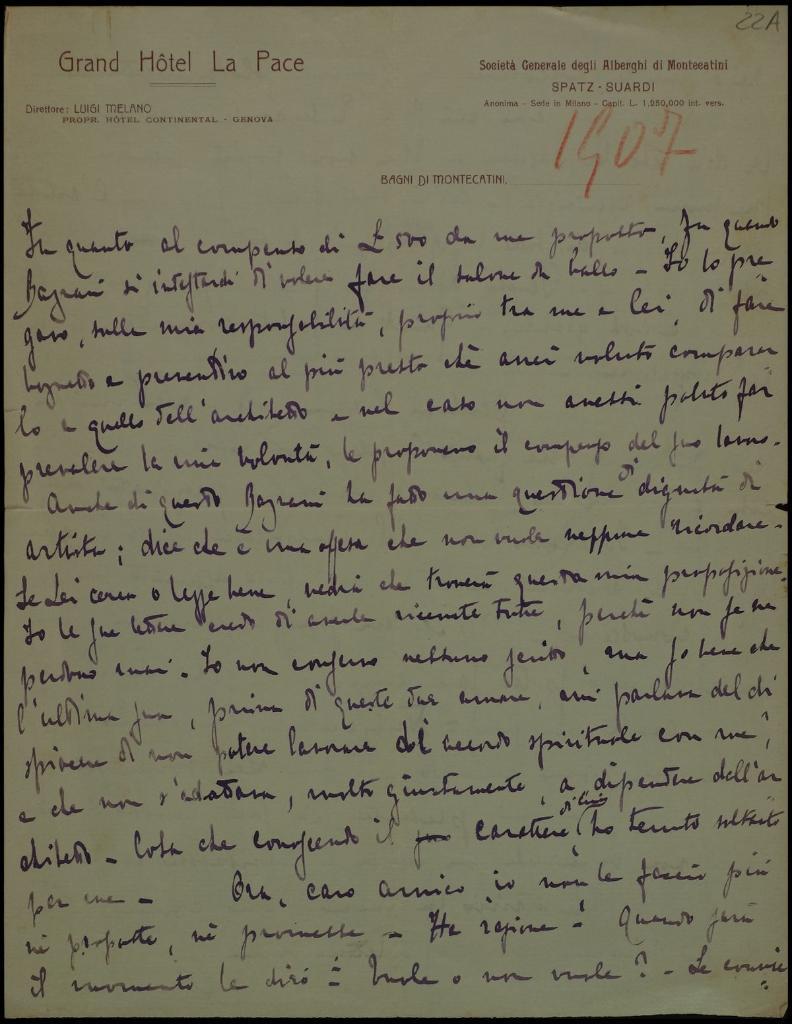 22A
Grand Hôtel La Pace
Direttore: LUIGI MELANO
PROPR. HÔTEL CONTINENTAL - GENOVA
Società Generale degli Alberghi di Montecatini
SPATZ - SUARDI
Anonima - Sede in Milano - Capit. L. 1,250,000 int. vers.
1907
BAGNI DI MONTECATINI,
In quanto al compenso di £ 500 da me proposto, fu quando
si intestardì di volere fare il salone da ballo - Io lo pre
gavo, sulla mia responsabilità, proprio tra me e lei, di fare
bozzetto e preventivo al più presto chè avrei voluto comparar
lo a quello dell'architetto e nel caso non avessi potuto far
prevalere la mia volontà, le proponevo il compenso del suo lavoro.
Anche di questo ha fatto una questione di dignità di
artista; dice che è una offesa che non vuole neppure ricordare -
Se Lei cerca o legge bene, vedrà che troverà questa mia proposizione.
Io le sue lettere credo di averle ricevute tutte, perchè non se ne
perdono mai. Io non conservo nessuno scritto, ma so bene che
l'ultima sua, prima di queste due amare, mi parlava del di
spiacere di non potere lavorare di accordo spirituale con me,
e che non s'adattava, molto giustamente, a dipendere dall'ar
chitetto - Cosa che conoscendo il carattere di lui, ho temuto soltanto
per me - Ora, caro amico, io non le faccio più
nè proposte, nè promesse - Ha ragione = Quando sarà
il momento le dirò = Vuole o non vuole? - Se